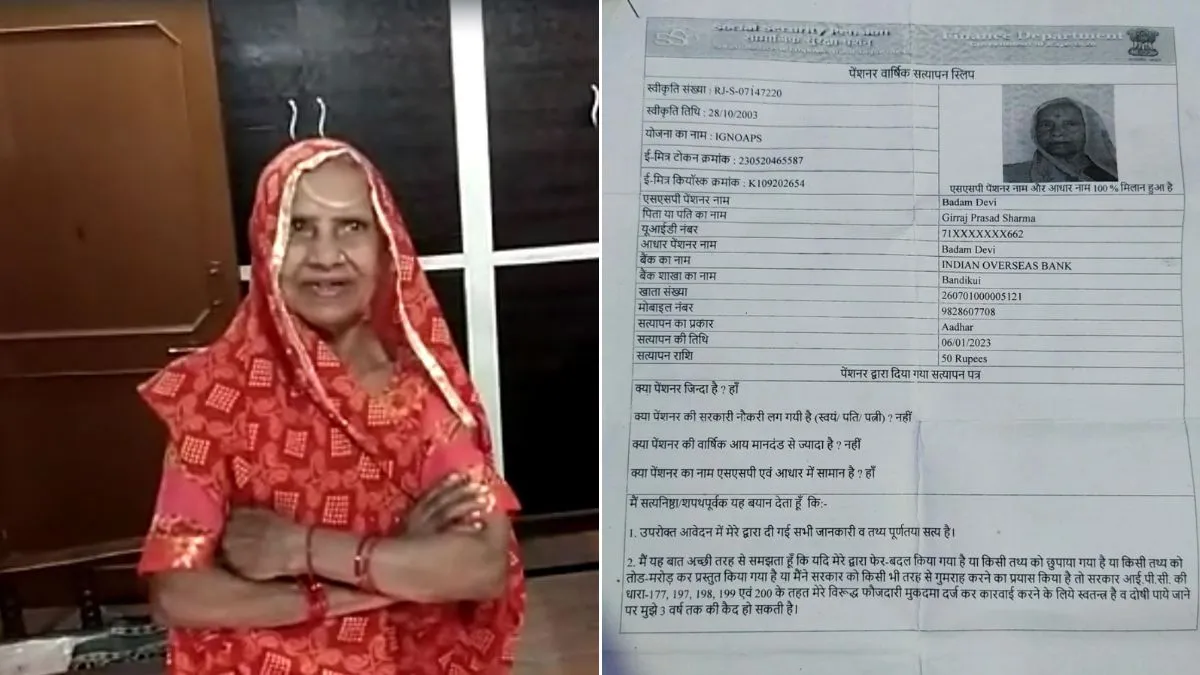 Social Security Pension
सामाजिक सुरक्षा पेंशन
Finance Department
पेंशनर वार्षिक सत्यापन स्लिप
स्वीकृति संख्या : RJ-S-07147220
स्वीकृति तिथि : 28/10/2003
योजना का नाम : IGNOAPS
ई-मित्र टोकन क्रमांक : 230520465587
ई-मित्र कियॉस्क क्रमांक : K109202654
एसएसपी पेंशनर नाम और आधार नाम 100 % मिलान हुआ है
एसएसपी पेंशनर नाम Badam Devi
पिता या पति का नाम Girraj Prasad Sharma
यूआईडी नंबर 71XXXXXXX662
आधार पेंशनर नाम Badam Devi
बैंक का नाम INDIAN OVERSEAS BANK
बैंक शाखा का नाम Bandikui
खाता संख्या 260701000005121
मोबाइल नंबर 9828607708
सत्यापन का प्रकार Aadhar
सत्यापन की तिथि 06/01/2023
सत्यापन राशि 50 Rupees
पेंशनर द्वारा दिया गया सत्यापन पत्र
क्या पेंशनर जिन्दा है ? हाँ
क्या पेंशनर की सरकारी नौकरी लग गयी है (स्वयं/ पति/ पत्नी) ? नहीं
क्या पेंशनर की वार्षिक आय मानदंड से ज्यादा है ? नहीं
क्या पेंशनर का नाम एसएसपी एवं आधार में सामान है ? हाँ
मैं सत्यनिष्ठा/शपथपूर्वक यह बयान देता हूँ कि:-
1. उपरोक्त आवेदन में मेरे द्वारा दी गई सभी जानकारी व तथ्य पूर्णतया सत्य है।
2. मैं यह बात अच्छी तरह से समझता हूँ कि यदि मेरे द्वारा फेर-बदल किया गया है या किसी तथ्य को छुपाया गया है या किसी तथ्य को
तोड-मरोड़ कर प्रस्तुत किया गया है या मैंने सरकार को किसी भी तरह से गुमराह करने का प्रयास किया है तो सरकार आई.पी.सी. की
धारा-177, 197, 198, 199 एवं 200 के तहत मेरे विरूद्ध फौजदारी मुकदमा दर्ज कर कारवाई करने के लिये स्वतन्त्र है व दोषी पाये जाने
पर मुझे 3 वर्ष तक की कैद हो सकती है।